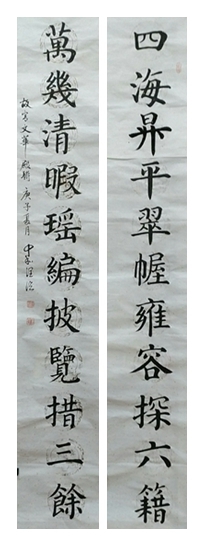 四海昇平翠幄雍容探六籍
萬幾清暇瑶編披覽惜三餘
故宮文華殿聯 庚子夏月